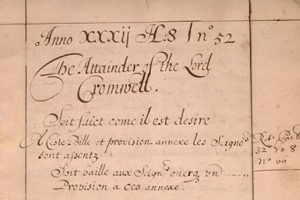 Anno XXXIJ H: 8 / nº 52
The Attainder of the Lord
Cromwell.
Soit faict come il est desire
A Ceste Bille et provision annexe les Seignrs
sont assentz
Soit baille aux Seignrs overq un
Provision a ceo annexe.
32 H 8
Nº 60